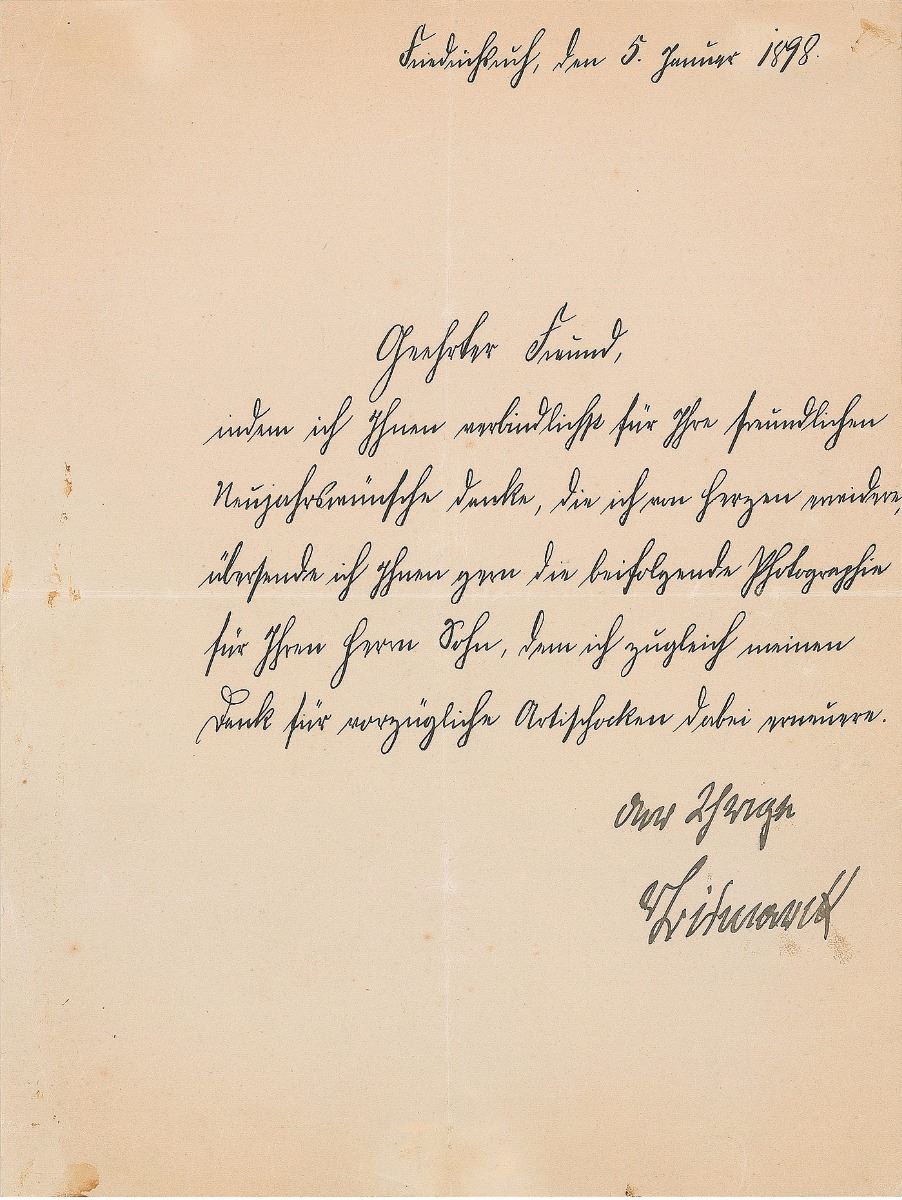 Friedrichsruh, den 5. Januar 1898.
Geehrter Freund,
indem ich Ihnen verbindlichst für Ihre freundlichen
Neujahrswünsche danke, die ich von Herzen erwidere,
übersende ich Ihnen gern die beifolgende Photographie
für Ihren Herrn Sohn, dem ich zugleich meinen
Dank für vorzügliche Artischocken dabei erneuere.
der Ihrige
vBismarck